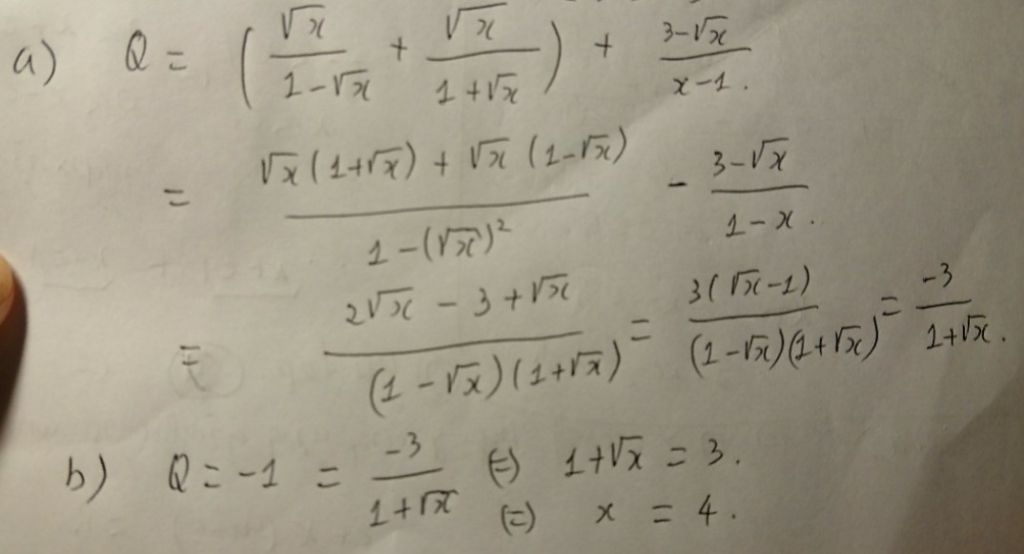 a) Q = ( √x / 1-√x + √x / 1+√x ) + 3-√x / x-1 .
= √x(1+√x) + √x (1-√x) / 1-(√x)² - 3-√x / 1-x .
= 2√x - 3 + √x / (1-√x)(1+√x) = 3(√x-1) / (1-√x)(1+√x) = -3 / 1+√x .
b) Q = -1 = -3 / 1+√x (=) 1+√x = 3 .
(=) x = 4 .